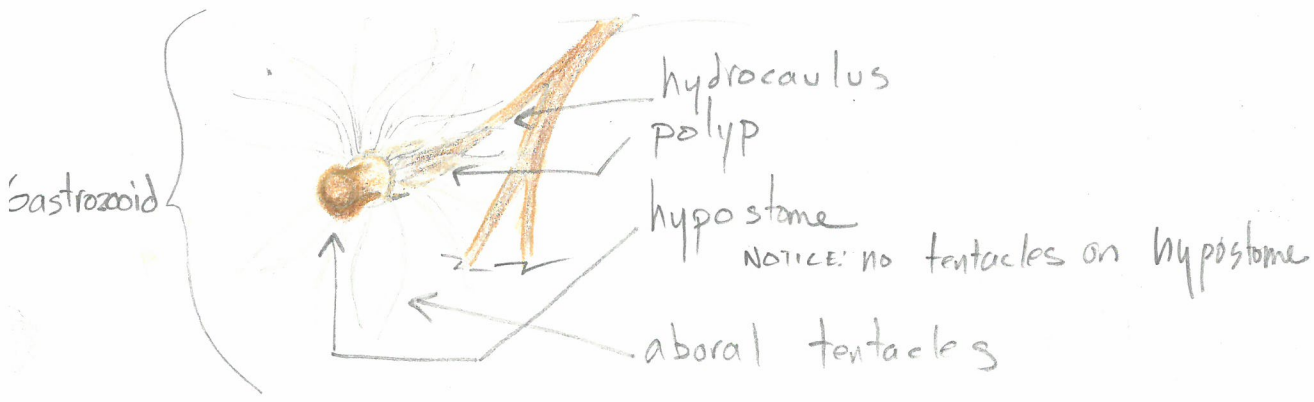 Gastrozooid
hydrocaulus
polyp
hypostome
NOTICE: no tentacles on hypostome
aboral tentacles